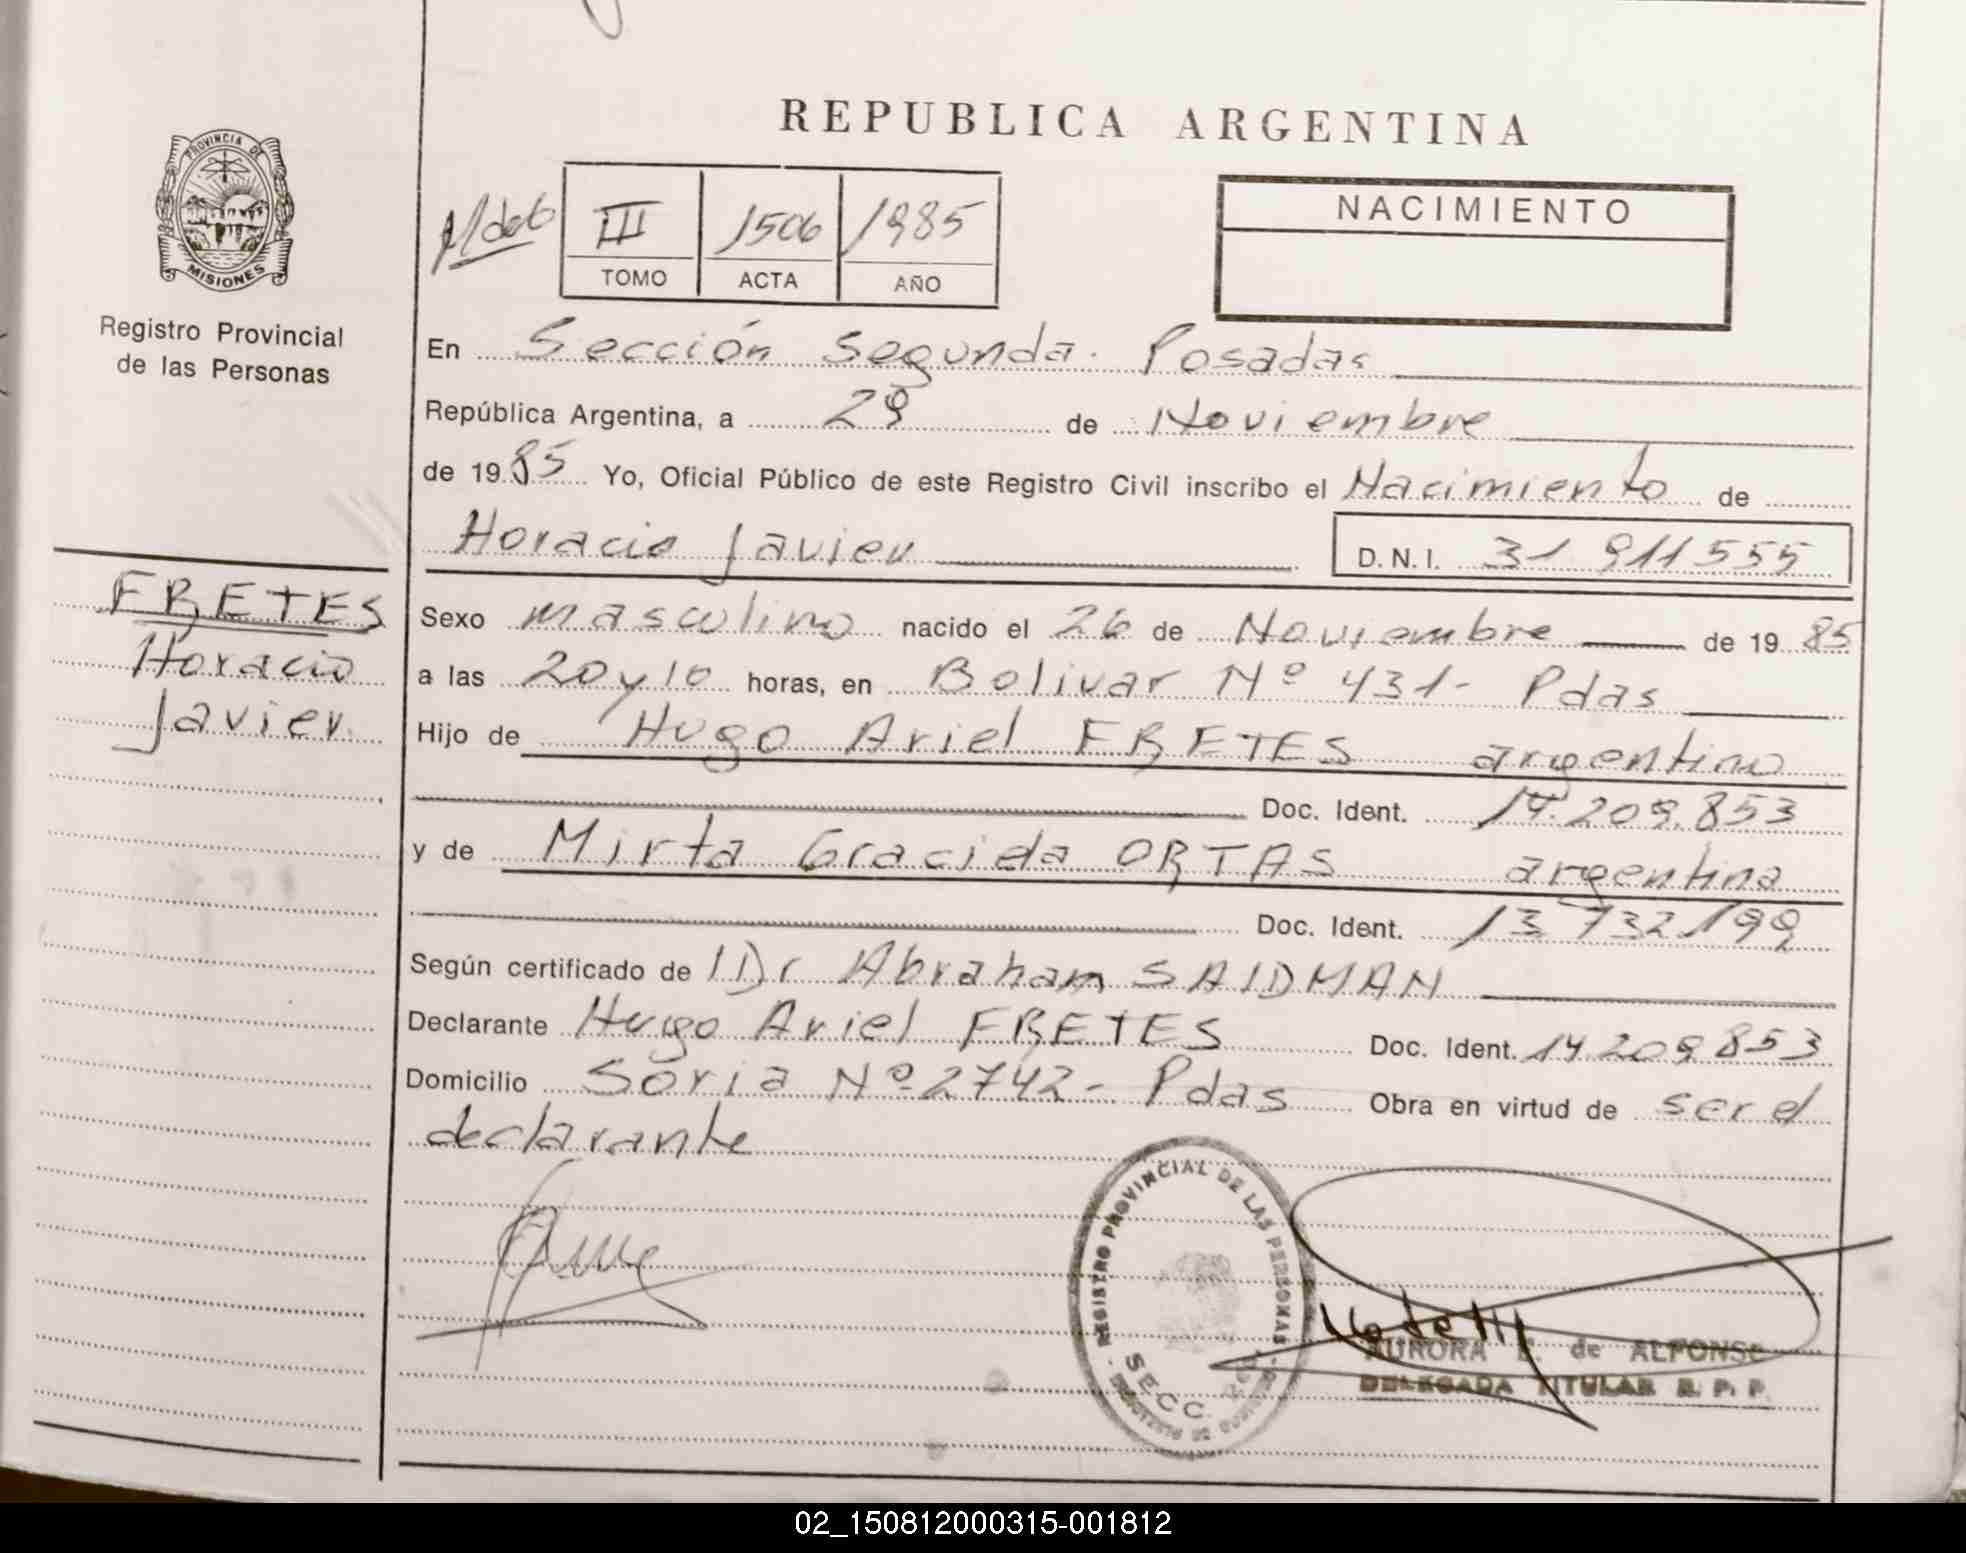 REPUBLICA ARGENTINA
PROVINCIA DE
MISIONES
Registro Provincial
de las Personas
III 1506 1985
TOMO ACTA AÑO
NACIMIENTO
En Sección Segunda. Posadas
República Argentina, a 29 de Noviembre
de 1985 Yo, Oficial Público de este Registro Civil inscribo el Nacimiento de
Horacio Javier D.N.I. 31 911555
FRETES
Horacio
Javier
Sexo masculino nacido el 26 de Noviembre de 1985
a las 20 y 10 horas, en Bolivar Nº 431- Pdas
Hijo de Hugo Ariel FRETES argentino
Doc. Ident. 14.209.853
y de Mirta Gracida ORTAS argentina
Doc. Ident. 13 732 199
Según certificado de Dr Abraham SAIDMAN
Declarante Hugo Ariel FRETES Doc. Ident. 14 209 853
Domicilio Soria Nº 2742- Pdas Obra en virtud de ser el
declarante
REGISTRO PROVINCIAL DE LAS PERSONAS
SECC.
AURORA E. de ALFONSO
DELEGADA TITULAR R. P. P.
02_150812000315-001812